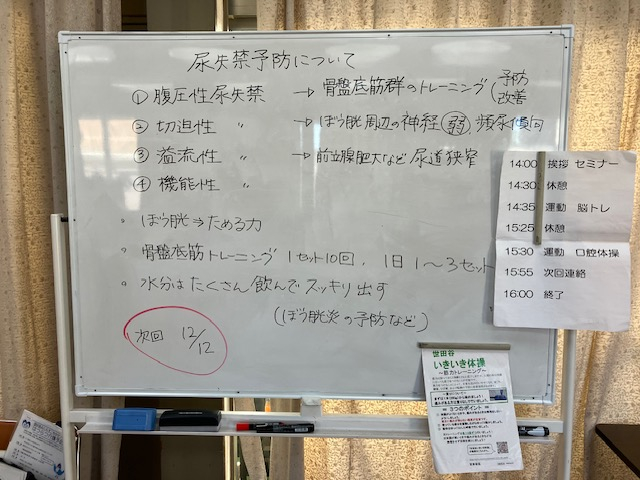 尿失禁予防について
① 腹圧性尿失禁 → 骨盤底筋群のトレーニング (予防 改善
② 切迫性 〃 → ぼう胱周辺の神経 弱 頻尿傾向
③ 溢流性 〃 → 前立腺肥大など 尿道狭窄
④ 機能性 〃
。ぼう胱⇒ためる力
。骨盤底筋トレーニング 1セット10回、1日1〜3セット
。水分はたくさん飲んでスッキリ出す
(ぼう胱炎の予防など)
次回 12/12
14:00 挨拶 セミナー
14:30 休憩
14:35 運動 脳トレ
15:25 休憩
15:30 運動 口腔体操
15:55 次回連絡
16:00 終了
世田谷
いきいき体操
〜筋力トレーニング〜
3つのポイント